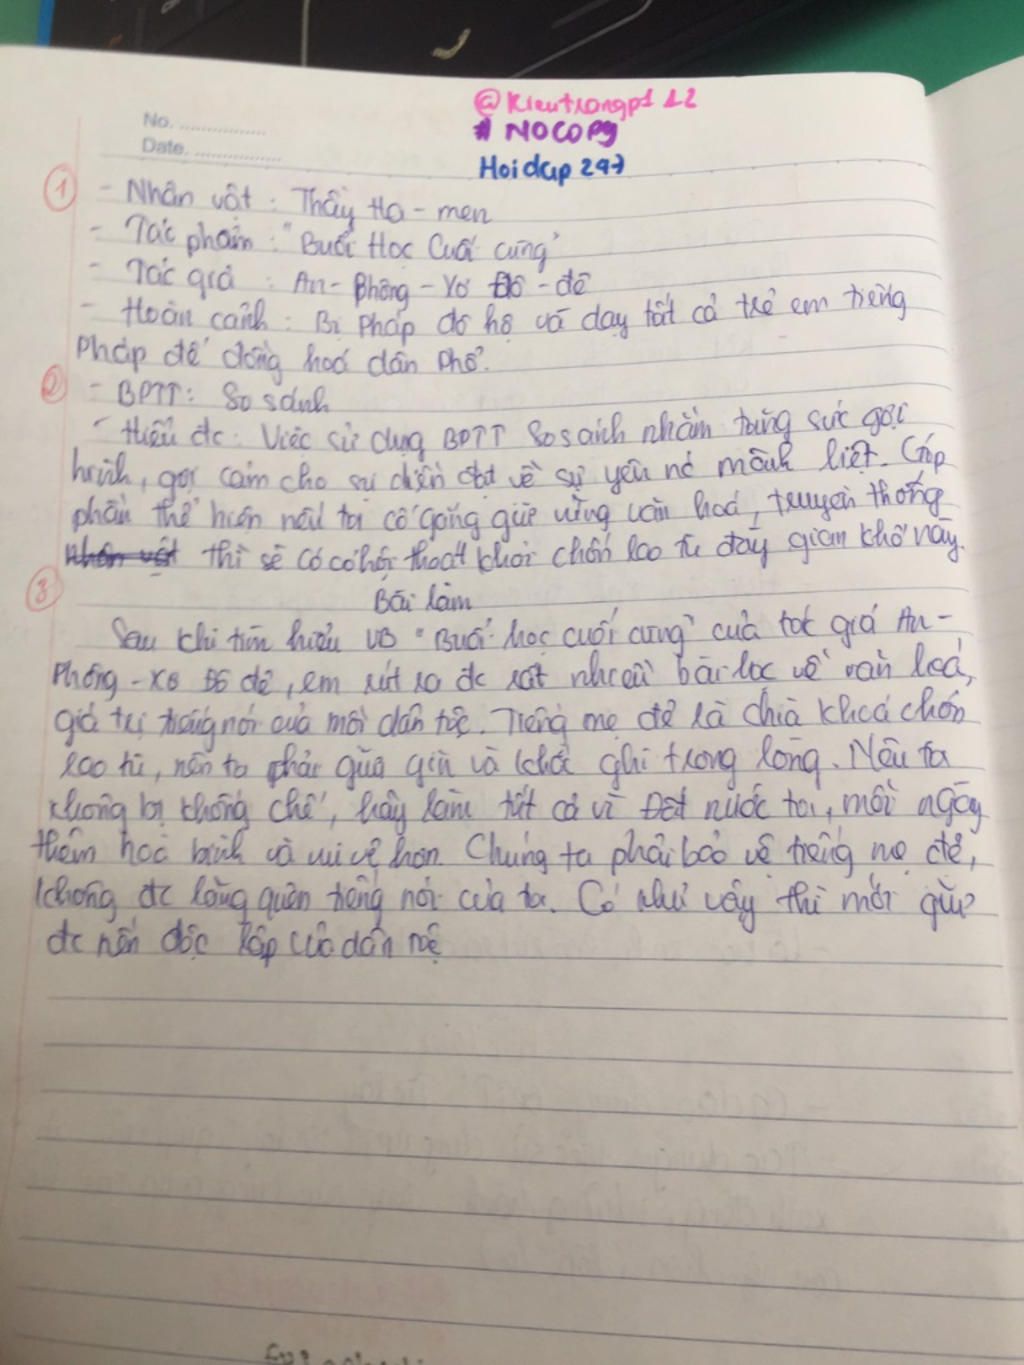 No. ...............
Date. ...............
@Kieutrangp1 12
# NOCOPY
Hoidap 247
1 - Nhân vật : Thầy Ha - men
- Tác phẩm : "Buổi Học Cuối cùng"
- Tác giả : An - Phông - Xơ Đô - đê
- Hoàn cảnh : Bị Pháp đô hộ và dạy tất cả trẻ em tiếng
Pháp để đồng hoá dân Phổ.
2 - BPTT : So sánh
- Hiệu đc : Việc sử dụng BPTT So sánh nhằm tăng sức gợi
hình, gợi cảm cho sự diễn đạt về sự yêu nó mãnh liệt. Góp
phần thể hiện nếu ta cố gắng giữ vững văn hoá, truyền thống
thì sẽ có cơ hội thoát khỏi chốn lao tù đầy gian khổ này.
3
Bài làm
Sau khi tìm hiểu VB "Buổi học cuối cùng" của tác giả An -
Phông - Xơ Đô đê, em rút ra đc rất nhiều bài học về văn hoá,
giá trị tiếng nói của mỗi dân tộc. Tiếng mẹ đẻ là chìa khoá chốn
lao tù, nên ta phải giữ gìn và khắc ghi trong lòng. Nếu ta
không bị khống chế, hãy làm tất cả vì Đất nước ta, mỗi ngày
thêm hoà bình và vui vẻ hơn. Chúng ta phải bảo vệ tiếng mẹ đẻ,
không đc lãng quên tiếng nói của ta. Có như vậy thì mới giữ
đc nền độc lập của dân tộc